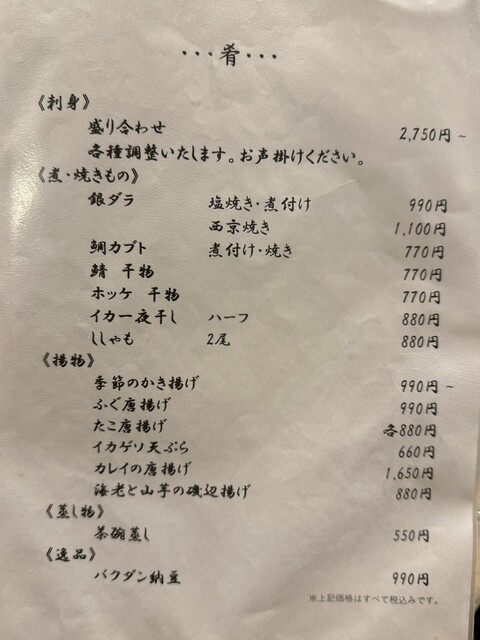 ・・・肴・・・
《刺身》
盛り合わせ 2,750円~
各種調整いたします。お声掛けください。
《煮・焼きもの》
銀ダラ 塩焼き・煮付け 990円
西京焼き 1,100円
鯛カブト 煮付け・焼き 770円
鯖 干物 770円
ホッケ 干物 770円
イカ一夜干し ハーフ 880円
ししゃも 2尾 880円
《揚物》
季節のかき揚げ 990円~
ふぐ唐揚げ 990円
たこ唐揚げ 各880円
イカゲソ天ぷら 660円
カレイの唐揚げ 1,650円
海老と山芋の磯辺揚げ 880円
《蒸し物》
茶碗蒸し 550円
《逸品》
バクダン納豆 990円
※上記価格はすべて税込みです。